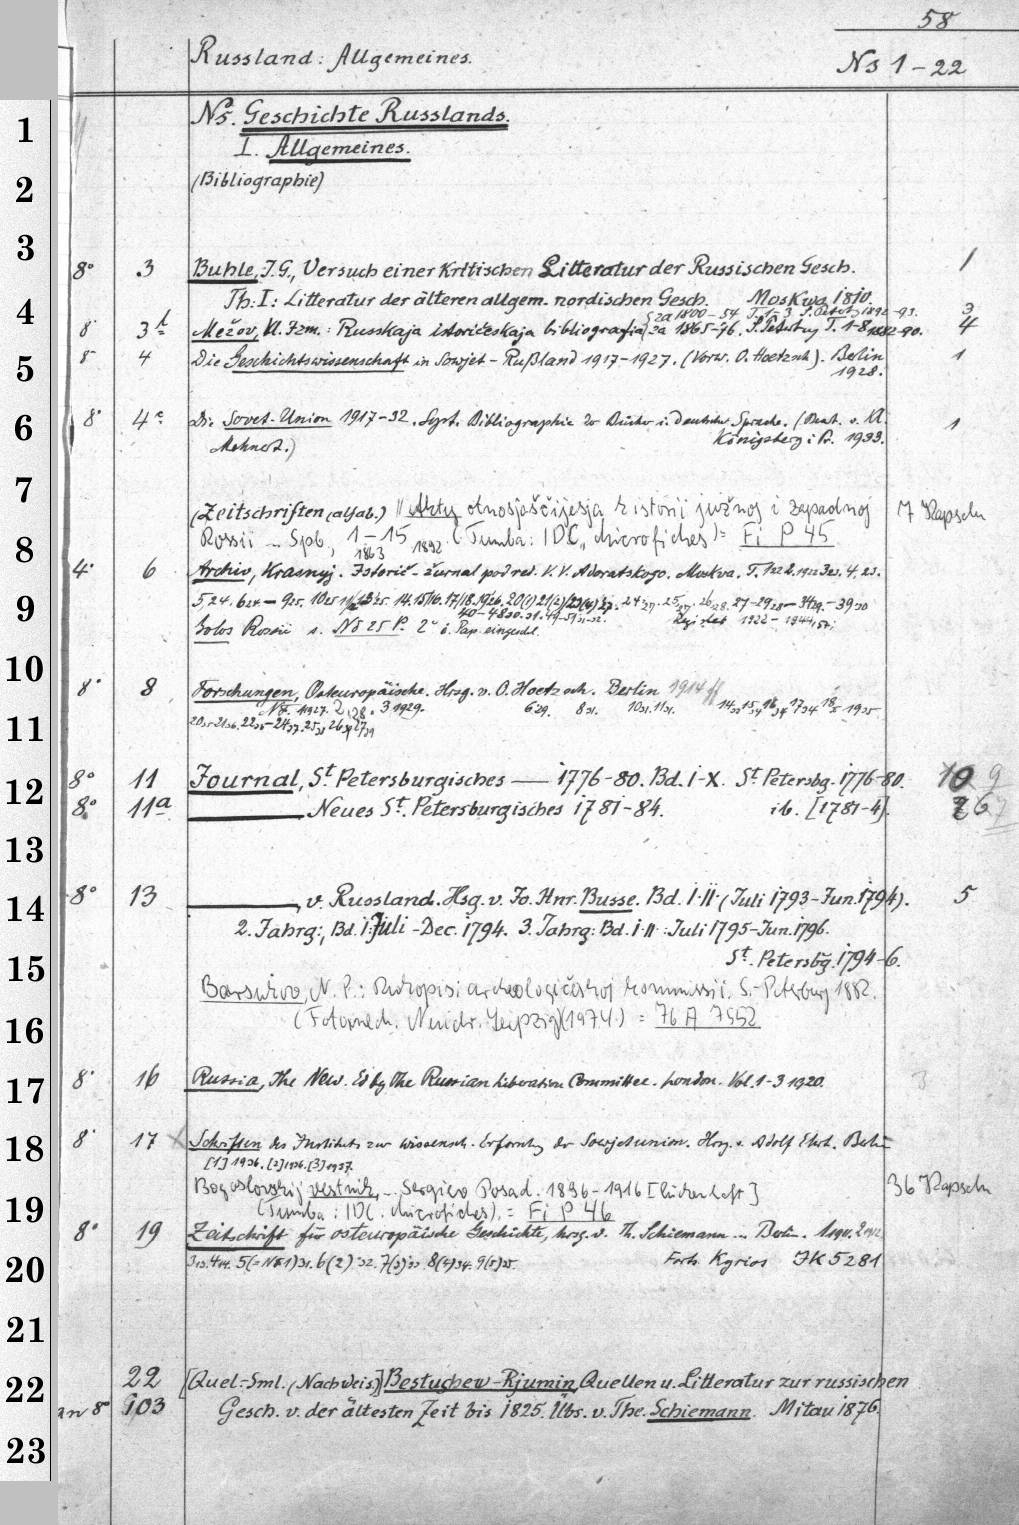 58
Russland: Allgemeines.
Ns 1-22
Ns. Geschichte Russlands.
1
I. Allgemeines.
2
(Bibliographie)
3
8° 3 Buhle, J.G., Versuch einer kritischen Litteratur der Russischen Gesch. 1
4
Th: I: Litteratur der älteren allgem. nordischen Gesch. Moskwa 1810.
za 1800-54 T. 1-3 S. Petbg 1892-93. 3
8° 3b Mežov, V. Izm.: Russkaja istoričeskaja bibliografia za 1865-76. S. Petbg T. 1-8 1882-90. 4
5
8° 4 Die Geschichtswissenschaft in Sowjet-Rußland 1917-1927. (Vorw. O. Hoetzsch). Berlin 1
1928.
6
8° 4a Die Sovet-Union 1917-32. Syst. Bibliographie d. Bücher i. deutscher Sprache. (Bearb. v. Kl. 1
Mehnert.) Königsberg i. Pr. 1933.
7
(Zeitschriften (alfab.) Akty otnosjaščijesja k istorii južnoj i zapadnoj 7 Kapseln
8
Rossii ... Spb, 1-15 (Tumba: IDC, microfiches) = Fi P 45
1863 1892
4° 6 Archiv, Krasnyj. Istorič-žurnal pod red. V. V. Adoratskogo. Moskva.
9
Golos Rossii s. Ns 25 P. 2° i. Pap. eingeschl.
Register 1922-1941
10
8° 8 Forschungen, Osteuropäische. Hrsg. v. O. Hoetzsch. Berlin 1914 ff
11
N.F. 1 1927. 2 28. 3 1929. 6 29. 8 31. 10 31. 11 31.
12
8° 11 Journal, St. Petersburgisches — 1776-80. Bd. I-X. St. Petersbg. 1776-80. 10 9
8° 11a — Neues St. Petersburgisches 1781-84. ib. [1781-4]. 6
13
14
8° 13 —, v. Russland. Hsg. v. Jo. Hnr. Busse. Bd. I. II (Juli 1793-Jun. 1794). 5
2. Jahrg:, Bd. I: Juli-Dec. 1794. 3. Jahrg: Bd. I. II: Juli 1795-Jun. 1796.
15
St. Petersbg. 1794-6.
Barsukov, N. P.: Rukopisi archeologičeskoj kommissii. S.-Peterburg 1882.
16
(Fotomech. Neudr. Leipzig (1974.) = 76 A 7552
17
8° 16 Russia, The New. Ed by the Russian Liberation Committee. London. Vol. 1-3 1920. 3
18
8° 17 Schriften des Instituts zur wissensch. Erforschg der Sowjetunion. Hrsg. v. Adolf Ehrt. Berlin
[1] 1936. [2] 1936. [3] 1937.
Bogoslovskij vestnik, ... Sergiev Posad. 1896-1916 [Lückenhaft] 36 Kapseln
19
(Tumba: IDC. microfiches). = Fi P 46
8° 19 Zeitschrift für osteuropäische Geschichte, hrsg. v. Th. Schiemann ... Berlin.
20
Forts. Kyrios JK 5281
21
22
22 [Quel.-Sml. (Nachweis)] Bestuchew-Rjumin, Quellen u. Litteratur zur russischen
an 8° 103 Gesch. v. der ältesten Zeit bis 1825. Übs. v. The. Schiemann. Mitau 1876.
23